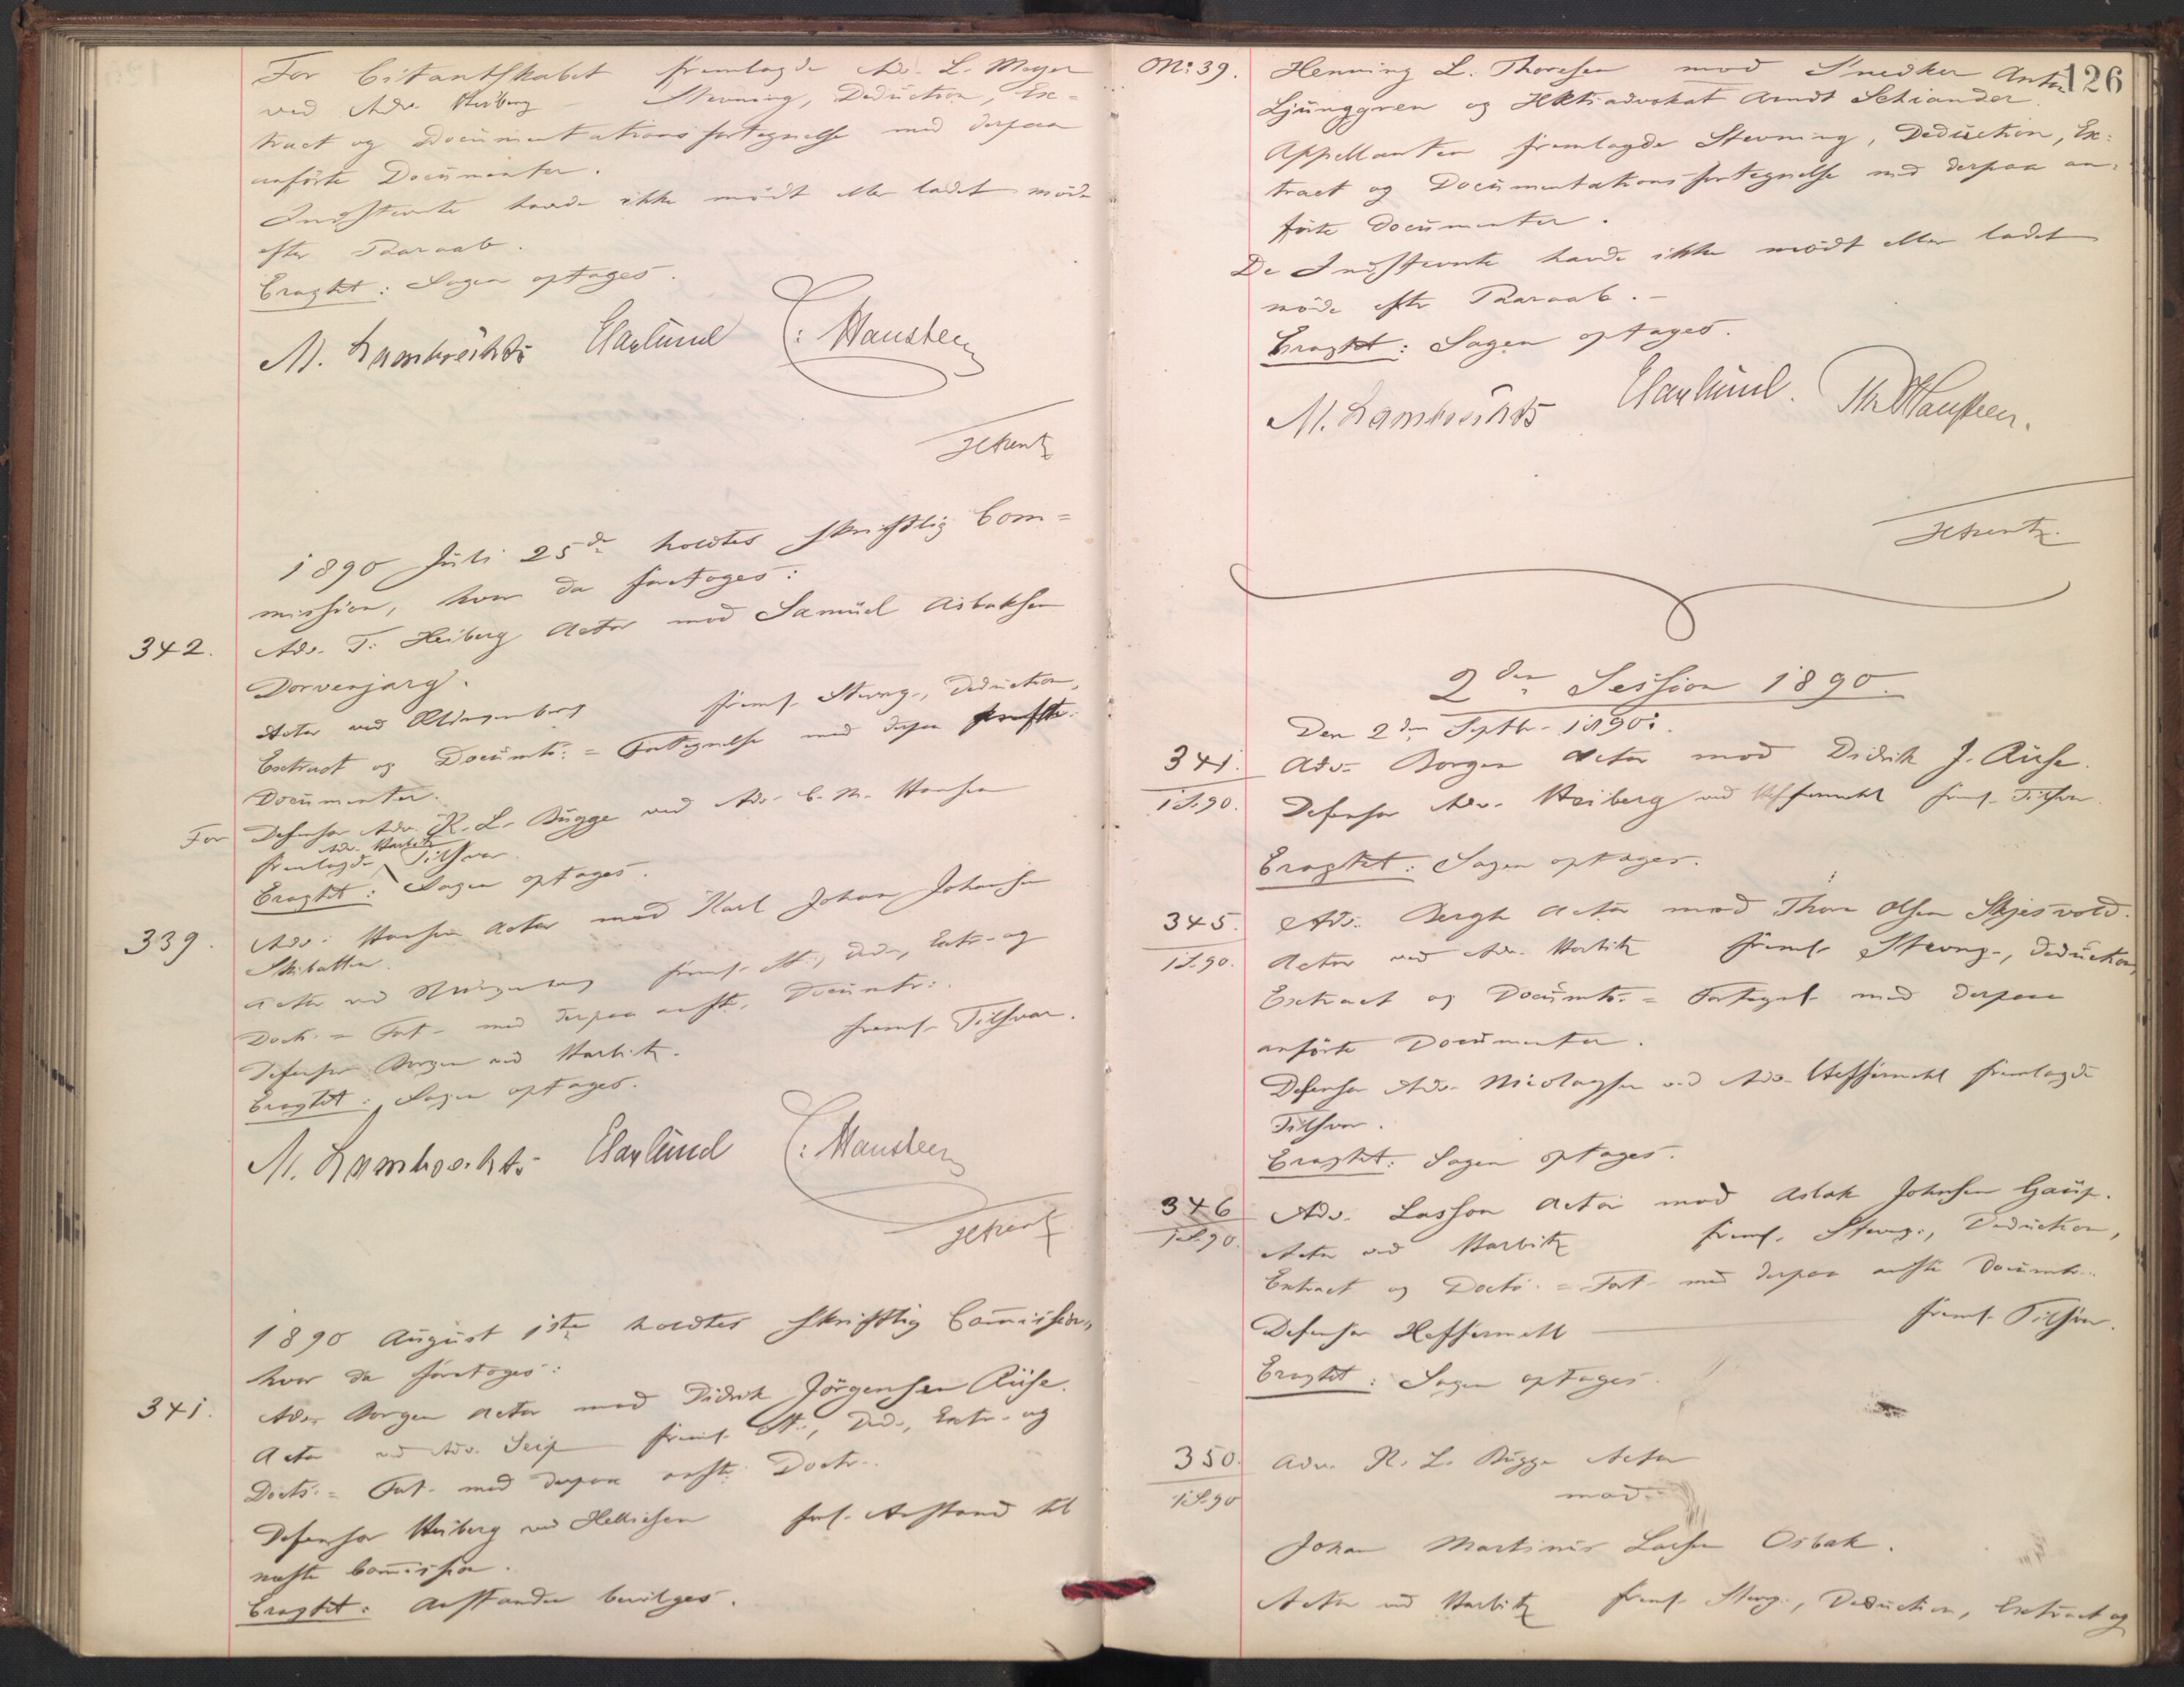 For Citantskabet fremlagde Adv. L. Meyer
ved Adv. Heiberg Stevning, Deduction, Ex=
tract og Documentationsfortegnelse med derpaa
anførte Documenter.
Indstevnte havde ikke mødt eller ladet møde
efter Paaraab.
Eragtet: Sagen optages.
M. Lambrechts Haxlund C. Hansteen
1890 Juli 25de holdtes skriftlig Com=
mission, hvor da foretoges:
342. Adv. T. Heiberg Actor mod Samuel Aslaksen
Dorvenjarg.
Actor ved Klingenberg freml. Stevng., Deduction,
Extract og Documts.= Fortegnelse med derpaa
Documenter.
For Defensor Adv. K. L. Bugge ved Adv. C. M. Hansen
fremlagde Adv. Harbitz Tilsvar.
Eragtet: Sagen optages.
339. Adv. Hansen Actor mod Karl Johan Johansen
Actor ved Klingenberg freml. St., Ded., Extr. og
Docts.= Fort. med derpaa anfte. Documtr.
Defensor Borgen ved Harbitz. freml. Tilsvar.
Eragtet: Sagen optages.
M. Lambrechts Haxlund C. Hansteen
1890 August 1ste holdtes skriftlig Commission,
hvor da foretoges:
341. Adv. Borgen Actor mod Didrik Jörgensen Ruse.
Actor ved Adv. Seip freml. St., Ded., Extr. og
Docts.= Fort. med derpaa anfte. Doctr.
Defensor Heiberg ved Helliesen forl. Anstand til
næste Commission.
Eragtet: Anstanden bevilges.
126
No. 39. Henning L. Thoresen mod Snedker Anton
Ljunggren og HRtsadvokat Arndt Schiander.
Appellanten fremlagde Stevning, Deduction, Ex=
tract og Documentationsfortegnelse med derpaa an=
førte Documenter.
De Indstevnte havde ikke mødt eller ladet
møde efter Paaraab.-
Eragtet: Sagen optages.
M. Lambrechts Haxlund. Hansteen.
2den Session 1890.
Den 2den Septbr. 1890:
341. Adv. Borgen Actor mod Didrik J. Ruse.
1 S. 90. Defensor Adv. Heiberg ved Heffermehl freml. Tilsvar.
Eragtet: Sagen optages.
345. Adv. Bergh Actor mod Thore Olsen Skjesvold.
1 S. 90. Actor ved Adv. Harbitz freml. Stevng., Deduction,
Extract og Documts.= Fortegnl. med derpaa
anførte Documenter.
Defensor Adv. Nicolaysen ved Adv. Heffermehl fremlagde
Tilsvar.
Eragtet: Sagen optages.
346 Adv. Lasson Actor mod Aslak Johnsen Gaup.
1 S. 90. Actor ved Harbitz freml. Stevng., Deduction,
Extract og Docts.= Fort. med derpaa anfte Documtr.
Defensor Heffermehl freml. Tilsvar.
Eragtet: Sagen optages.
350. Adv. K. L. Bugge Actor
1 S. 90 mod
Johan Martinus Larsen Osbak.
Actor ved Harbitz freml. Stevng., Deduction, Extract og